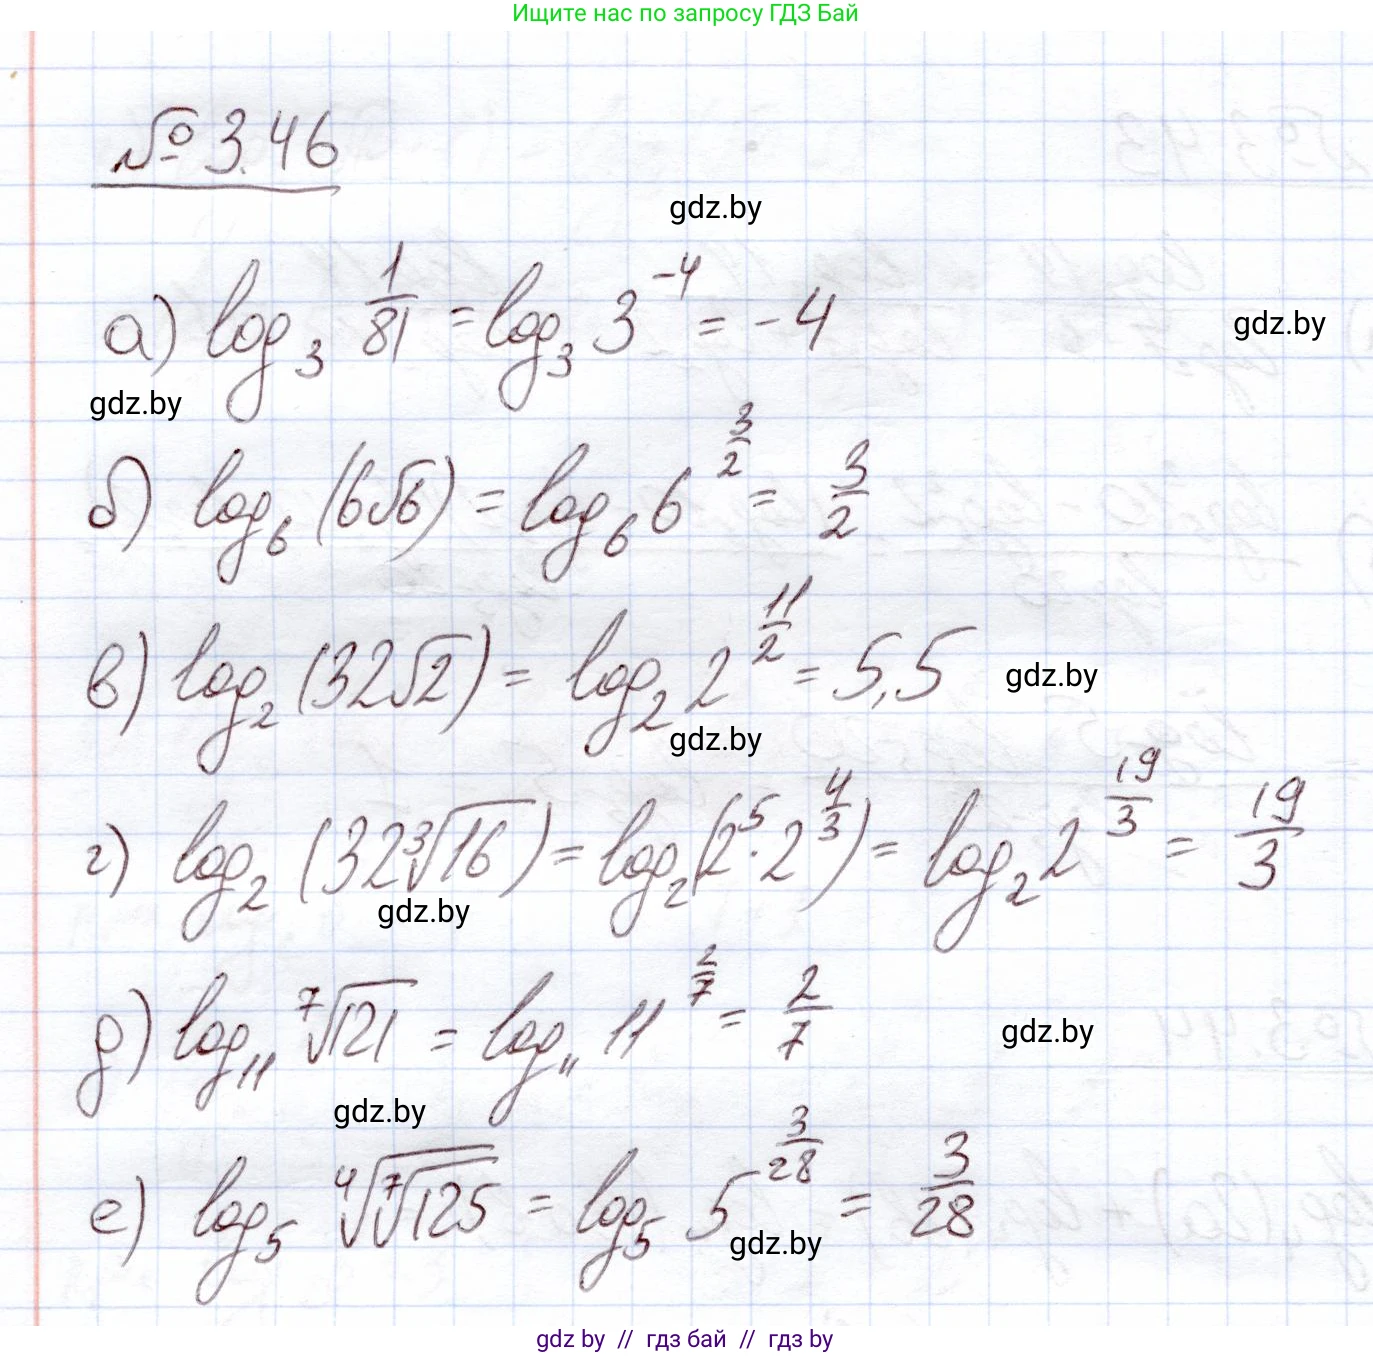 Ищите нас по запросу ГДЗ Бай
№ 3.46
gdz.by
а) log₃ 1/81 = log₃ 3⁻⁴ = -4
gdz.by
gdz.by
б) log₆ (6√6) = log₆ 6^(3/2) = 3/2
в) log₂ (32√2) = log₂ 2^(11/2) = 5,5
gdz.by
gdz.by
г) log₂ (32∛16) = log₂ (2⁵·2^(4/3)) = log₂ 2^(19/3) = 19/3
gdz.by
д) log₁₁ ⁷√121 = log₁₁ 11^(2/7) = 2/7
gdz.by
gdz.by
е) log₅ ⁴√⁷√125 = log₅ 5^(3/28) = 3/28
gdz.by
gdz by // гдз бай // гдз by